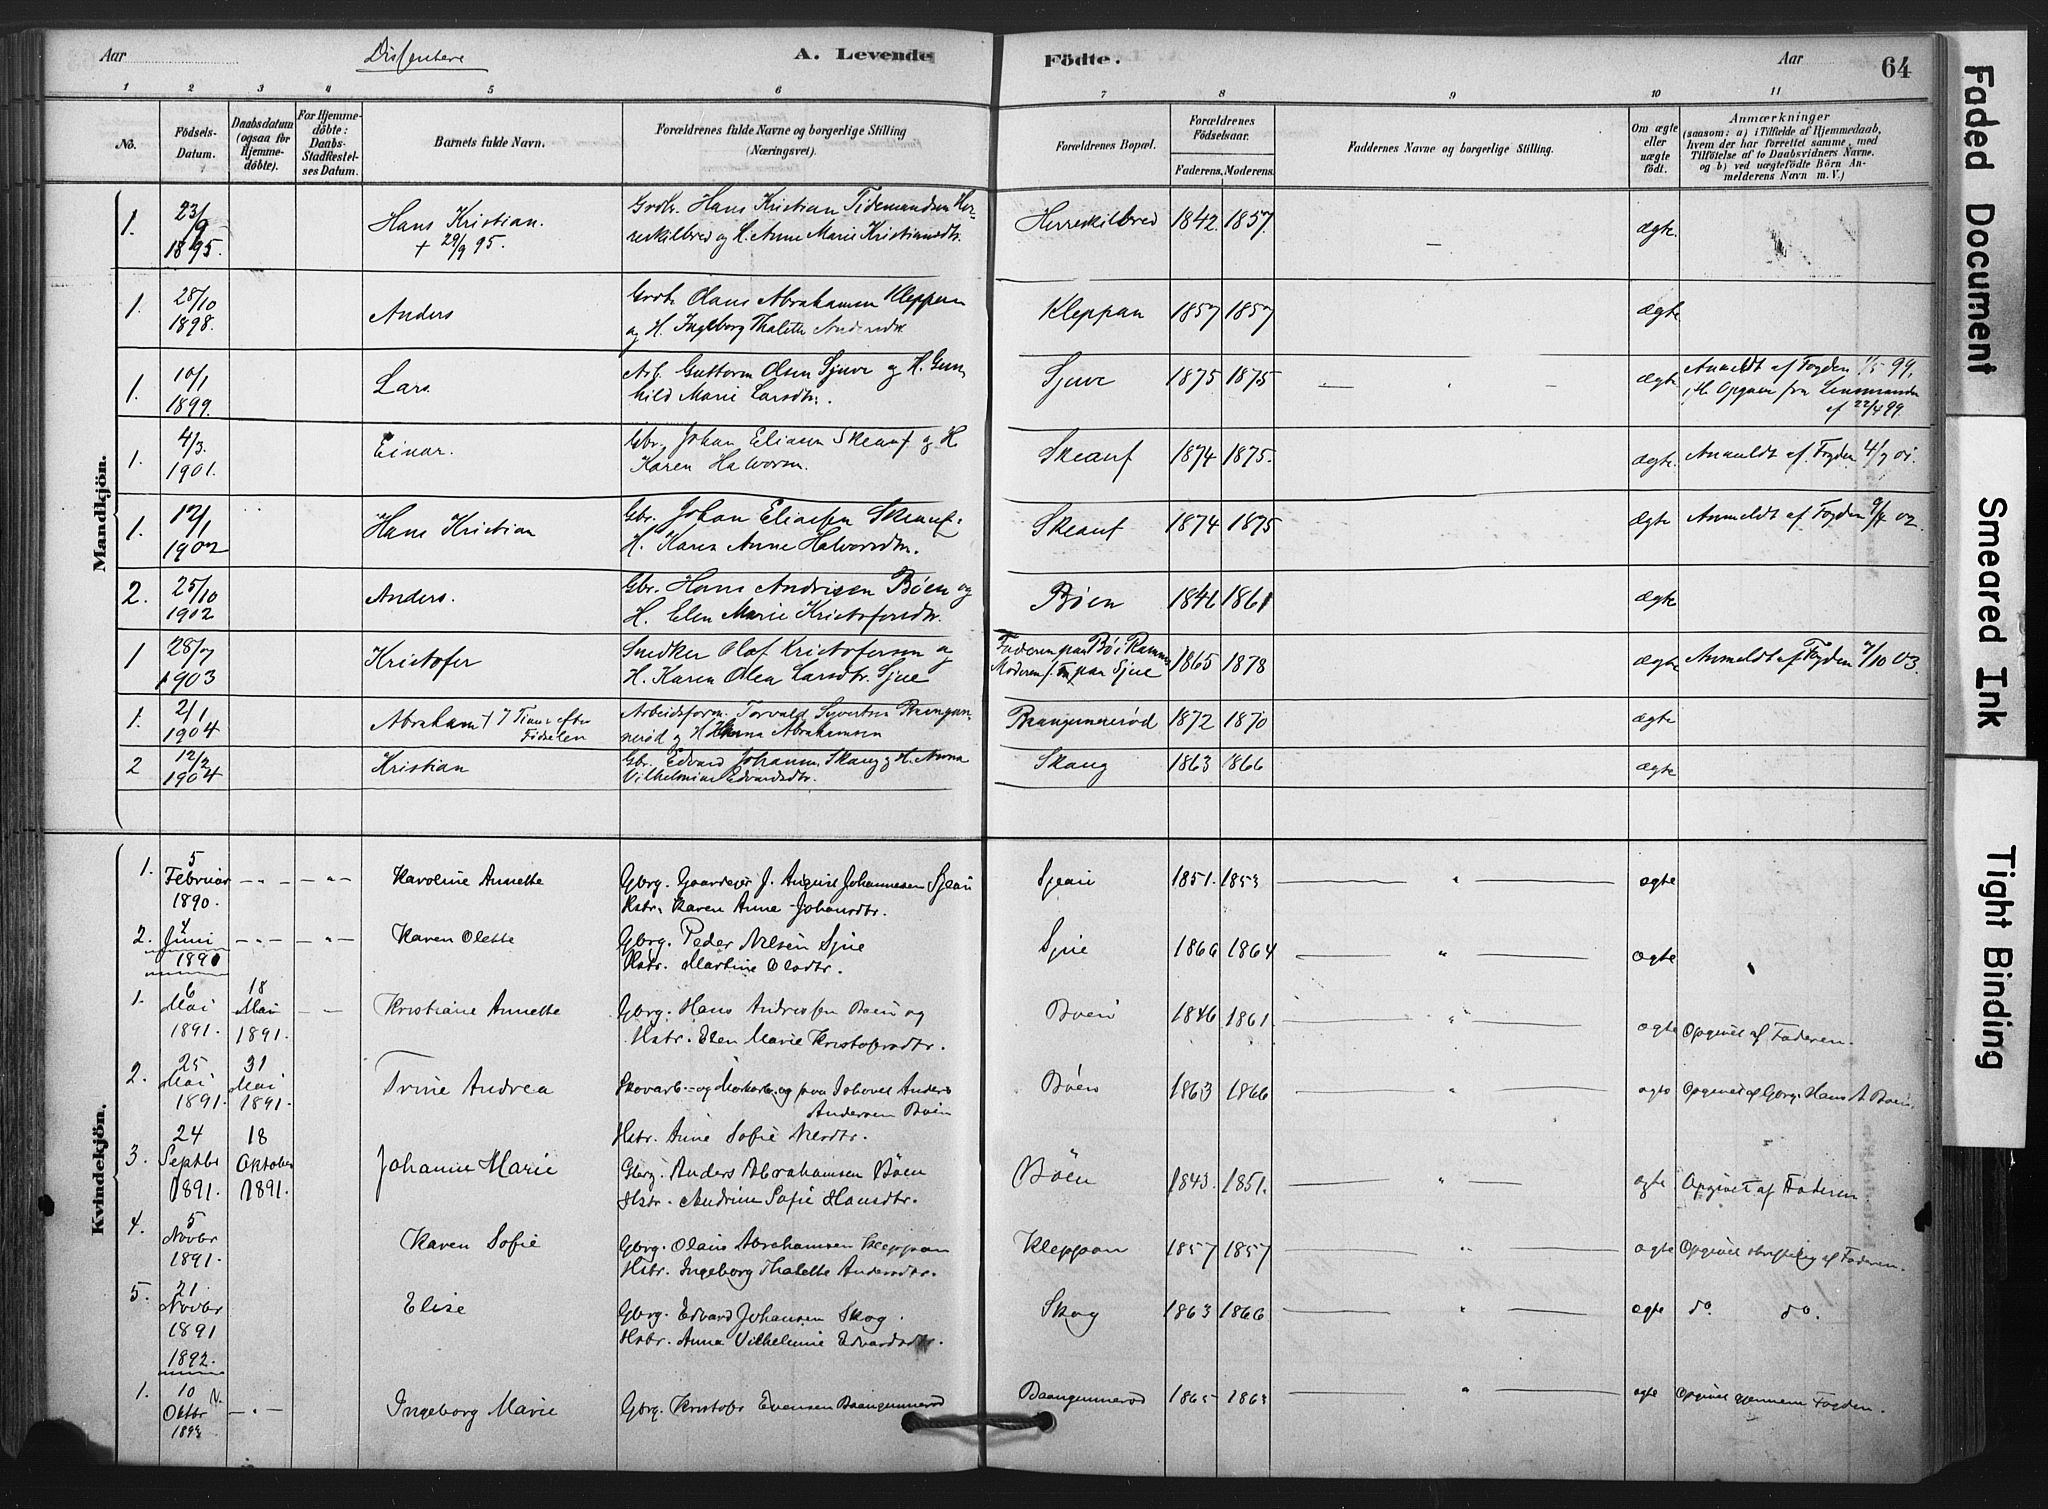 Aar
Dissentere
A. Levende
Födte.
Aar
64
1 2 3 4 5 6 7 8 9 10 11
No.
Födsels-Datum.
Daabsdatum (ogsaa for Hjemmedöbte).
For Hjemmedöbte: Daabs-Stadfæstelses Datum.
Barnets fulde Navn.
Forældrenes fulde Navne og borgerlige Stilling (Næringsvei).
Forældrenes Bopæl.
Forældrenes Födselsaar.
Faderens. Moderens.
Faddernes Navne og borgerlige Stilling.
Om ægte eller uægte födt.
Anmærkninger
(saasom: a) i Tilfælde af Hjemmedaab,
hvem der har forrettet samme, med
Tilföielse af to Daabsvidners Navne.
og b) ved uægtefödte Börn Anmelderens Navn m. V.)
Mandkjön.
1. 23/9 1895. Hans Kristian. + 29/9 95. Grdbr. Hans Kristian Tidemandsen Herreskilbred og H. Anne Marie Kristiansdtr. Herreskilbred 1842. 1857. ægte.
1. 28/10 1898. Anders Grdb. Olaus Abrahamsen Kleppan og H. Ingeborg Thalette Andersdtr. Kleppan 1857 1857 ægte
1. 10/1 1899. Lars Arb. Guttorm Olsen Sjuve og H. Gunhild Marie Larsdtr. Sjuve 1875 1875 ægte Anmeldt af Fogden 1/5 99, Opgave fra Lensmanden af 22/4 99
1. 4/3 1901. Einar. Gbr. Johan Eliasen Skeauf og H. Karen Halvorsn. Skeauf 1874 1875. ægte. Anmeldt af Fogden 4/7 01.
1. 12/1 1902 Hans Kristian Gbr. Johan Eliasen Skeauf. H. Karen Anne Halvorsdtr. Skeauf 1874 1875 ægte Anmeldt af Fogden 9/4 02.
2. 25/10 1902 Anders. Gbr. Hans Andresen Bøen og H. Elen Marie Kristofersdtr. Bøen 1846 1861 ægte
1 28/7 1903 Kristofer Snedker Olaf Kristofersen og H. Karen Olea Larsdtr. Sjue Faderen paa Bø i Ramnes Moderen paa Sjue 1865 1878 ægte Anmeldt af Fogden 7/10 03.
1. 2/1 1904 Abraham † 7 Timer efter Fødselen Arbeidsform. Torvald Syvertsen Baangunnerød og H. Abrahamsen Baangunnerød 1872 1870 ægte
2 12/2 1904 Kristian Gbr. Edvard Johansn. Skaug og H. Anna Vilhelmine Edvardsdtr. Skaug 1863 1866 ægte
Kvindekjön.
1. 5 Februar 1890. Karoline Annette Gbrg. Gaardeier J. August Johannessen Sjeau Hstr. Karen Anne Johansdtr. Sjeau 1851. 1853 ægte
2. 4 Juni 1890 Karen Olette Gbrg. Peder Nilsen Sjue Hstr. Martine Olsdtr. Sjue 1866 1864 ægte
1. 6 Mai 1891. 18 Mai 1891. Kristiane Annette Gbrg. Hans Andressen Bøen og Hstr. Elen Marie Kristofersdtr. Bøen 1846 1861. ægte Opgivet af Faderen.
2. 25 Mai 1891. 31 Mai 1891. Trine Andrea Skovarb. og Markarb. og paa Anders Andersen Bøen Hstr. Anne Sofie Nilsdtr. Bøen 1863 1866 ægte Opgivet af Gbrg. Hans A. Bøen.
3. 24 Septbr 1891. 18 Oktober 1891. Johanne Marie Gbrg. Anders Abrahamsen Bøen Hstr. Andrine Sofie Hansdtr. Bøen 1843. 1851. ægte Opgivet af Faderen.
4. 5 Novbr 1891. Karen Sofie Gbrg. Olaus Abrahamsen Kleppan Hstr. Ingeborg Thalette Andersdtr. Kleppan 1857 1857 ægte Opgivet skriftlig af Faderen.
5. 21. Novbr 1891 Elise Gbrg. Edvard Johansen Skog. Hstr. Anna Vilhelmine Edvardsdtr. Skog 1863 1866 ægte do. do.
1892.
1. 10 Oktbr 1893 Ingeborg Marie Gbrg. Kristofr Evensen Baangunnerød Baangunnerød 1865 1863 ægte Opgivet gennem Fogden.
Faded Document
Smeared Ink
Tight Binding